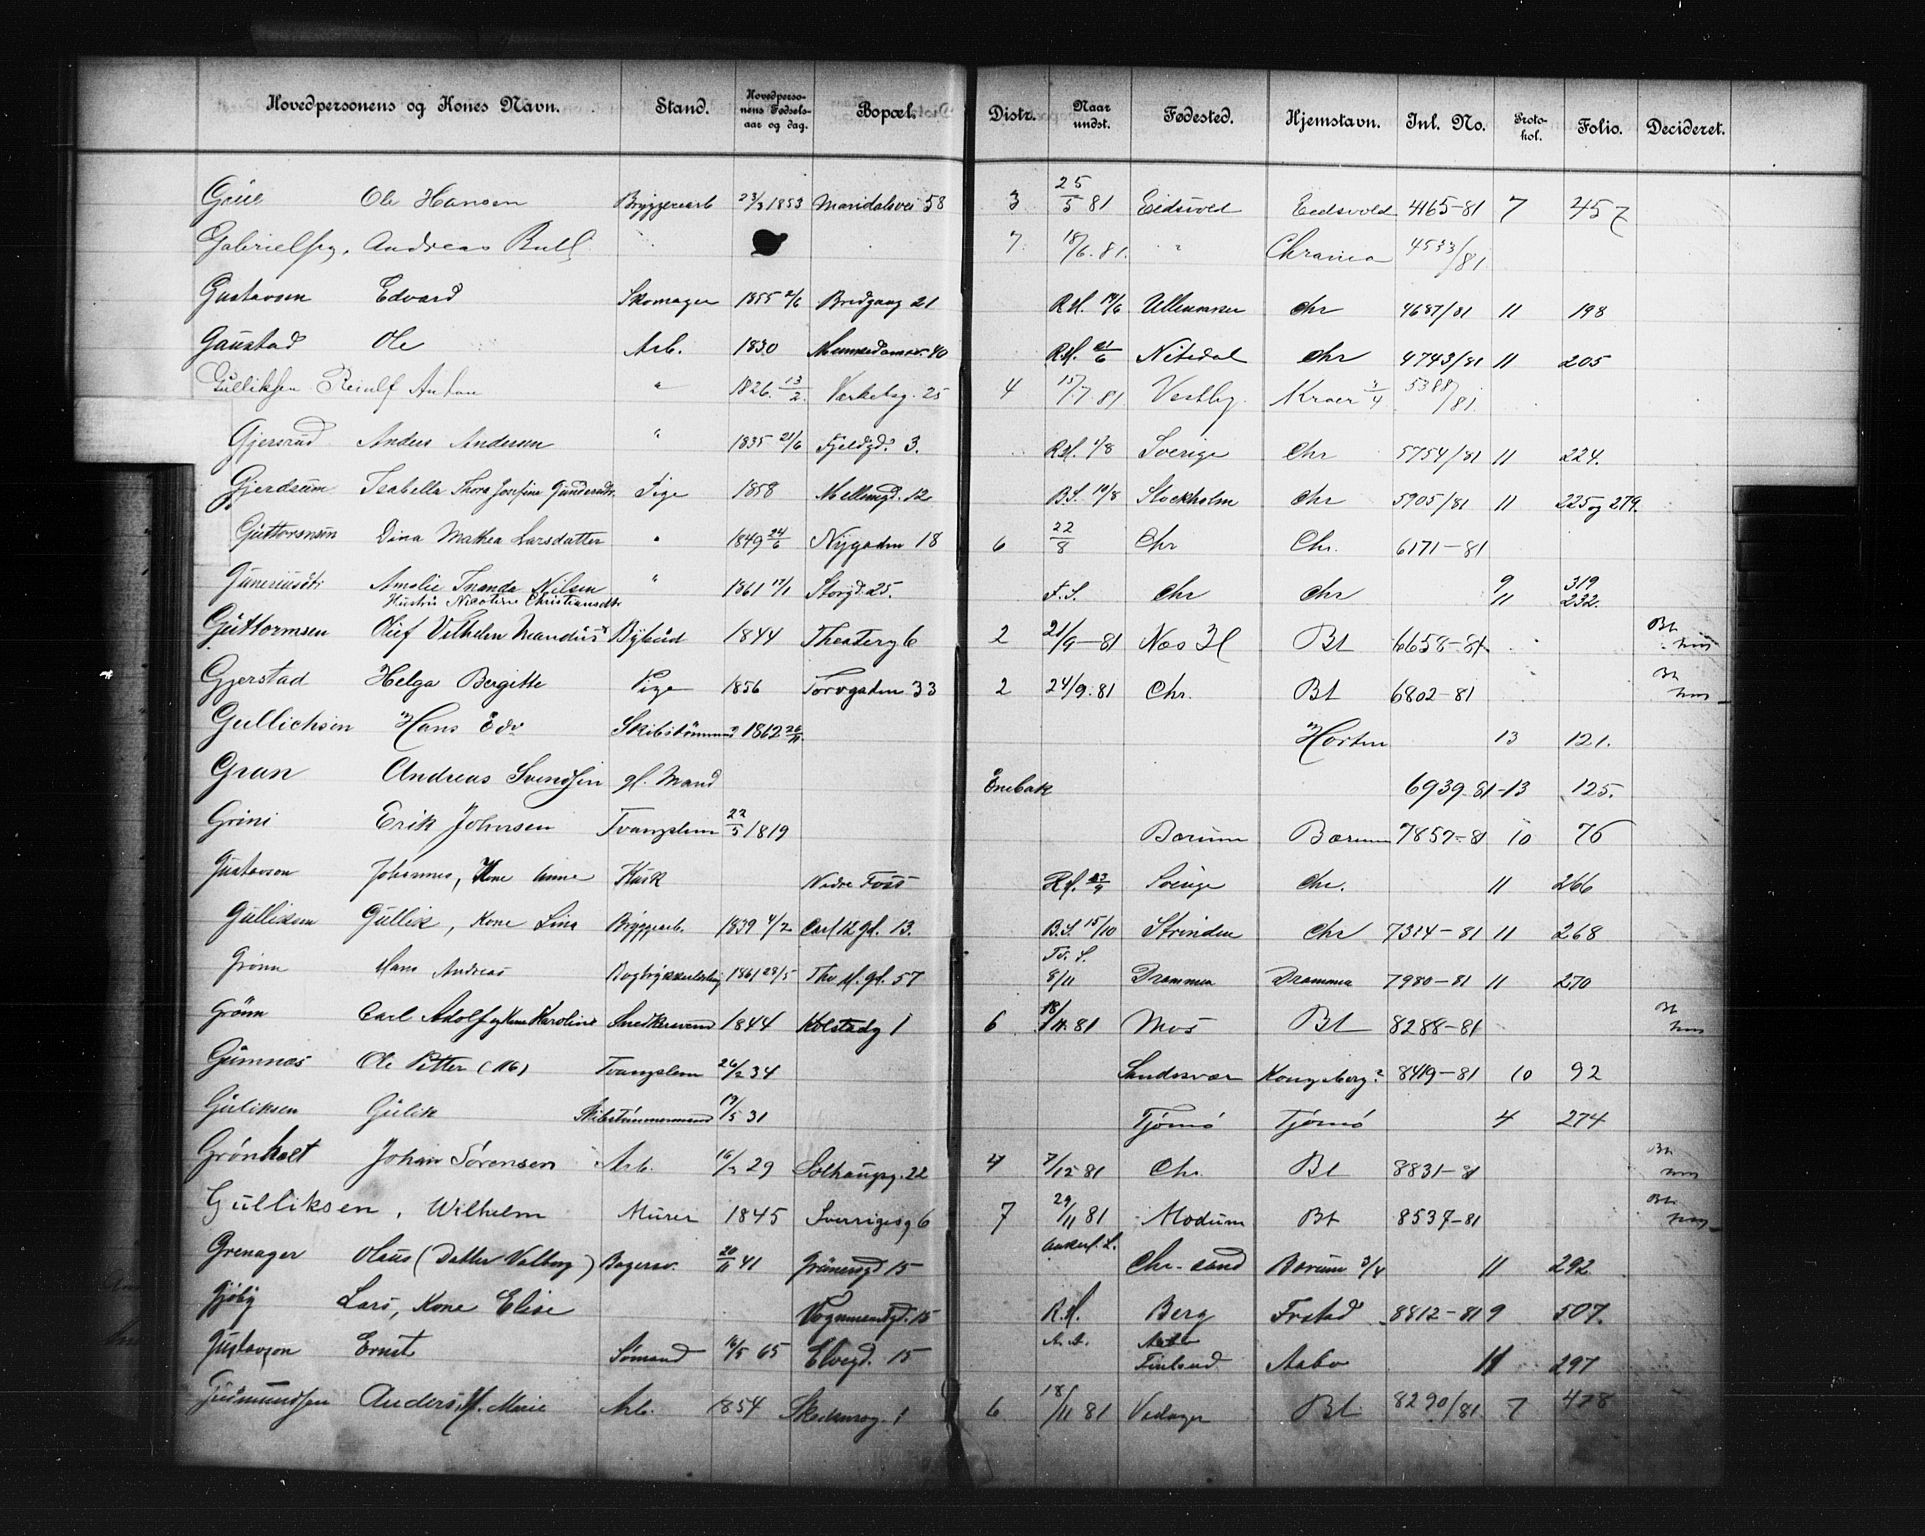 Hovedpersonens og Kones Navn. Stand. Hovedpersonens Fødselsaar og dag. Bopæl. Distr. Naar undst. Fødested. Hjemstavn. Inl. No. Protokol. Folio. Decideret.
Ole Hansen Bryggeriarb 23/3 1853 Maridalsvei 58 3 25/5 81 Eidsvold Eidsvold 4165-81 7 457
Gabrielsen, Andreas Bull 7 18/6. 81. " Chrania 4533/81.
Gustavsen Edvard Skomager 1855 2/6 Bredgang 21 R.H. 14/6 Ullensaker Chr 4687/81 11 198
Gaustad Ole Arb. 1830 Munkedamsv. 40 R.H. 21/6 Nitedal Chr 4743/81 11 205
Gulliksen Anton " 1826. 13/2. 25 4 15/7. 81 Vestby Kraer 3/4 5388/81.
Gjersrud Anders Andersen " 1835 21/6 Fjeldgd. 3. R.H. 1/8 Sverige Chr 5754/81 11 224.
Gjerdrum Isabella Thora Josefine Gundersdtr. Pige 1858 Mellemgd. 12 B.S. 10/8 Stockholm Chr 5905/81 11 225 og 279.
Guttormsen Dina Mathea Larsdatter " 1849 24/6 Nygaden 18 6 22/8 Chr Chr. 6171-81
Amalie Nilsen " 1861 17/1 Storgd. 25. F.S. Chr Chr 9 319
Hustru Nicoline Christiansdtr 11 232.
Guttormsen Oluf Vilhelm Mandius Bybud 1844 Theaterg 6 2 21/9-81 Næs Bt 6658-81 Bt
Gjerstad Helga Bergitte Pige 1856 Torvgaden 33 2 24/9. 81 Chr. Bt 6802-81 Bt
Gullichsen Hans Edv Skibstømmermd 1862 Horten 13 121.
Gran Andreas Svendsen gl. Mand Enebak 6939-81-13 125.
Grini Erik Johnsen Tvangslem 22/5 1819 Bærum Bærum 7857-81 10 76
Gustavson Johannes, Kone Anne Kusk Nedre Foss R.H. 23/9 Sverige Chr. 11 266
Gulliksen Gullik, Kone Lina Bryggearb. 1839 4/2 Carl 12 gd. 13. B.S. 15/10 Strinden Chr 7314-81 11 268
Grønn Hans Andreas 1861 28/5 Thv M. gd. 57 8/11 Drammen Drammen 7980-81 11 270
Grönn Carl Adolf og Kone Karoline Snedkersvend 1844 Kolstadg 1 6 18/11. 81 Mos Bt 8288-81 Bt
Gumnæs Ole Petter (116) Tvangslem 26/2 34 Sandsvær Kongsberg? 8419-81 10 92
Guliksen Gulik Skibstømmermand 19/5 31 Tjømø Tjømø 4 274
Grönholt Johan Sørensen Arb. 16/2 29 Solhaugg. 22 4 7/12 81 Chr. Bt 8831-81 Bt
Gulliksen, Wilhelm Murer 1845 Sverrigesg 6 7 29/11 81 Modum Bt 8537-81 Bt
Grenager Olaus (Datter Valborg) Bagersv. 20/11 41 Grünersgd 15 Ankerl. L. Chr-sand Bærum 3/4 11 292
Gjøby Lars, Kone Elise Vognmandsgd. 15 R.H. Berg Frstad 8812-81 9 507.
Gustavson Ernst Sømand 16/5 65 Elvegd. 15 A.A. Finland Aabo 11 297
Gudmundsen Anders, H. Marie Arb. 1854 1 6 18/11 81 Bt. 8290/81 7 478